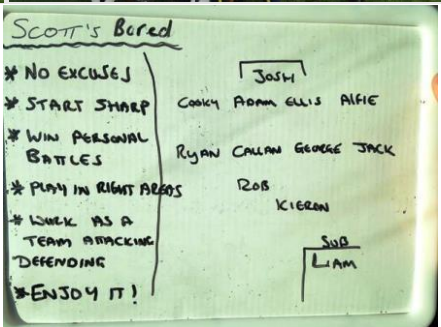 SCOTT'S Bored
* NO EXCUSES
* START SHARP
* WIN PERSONAL
BATTLES
* PLAY IN RIGHT AREAS
* WORK AS A
TEAM ATTACKING
DEFENDING
* ENJOY IT!
JOSH
COOKY ADAM ELLIS ALFIE
RYAN CALLAN GEORGE JACK
ROB
KIERON
SUB
LIAM